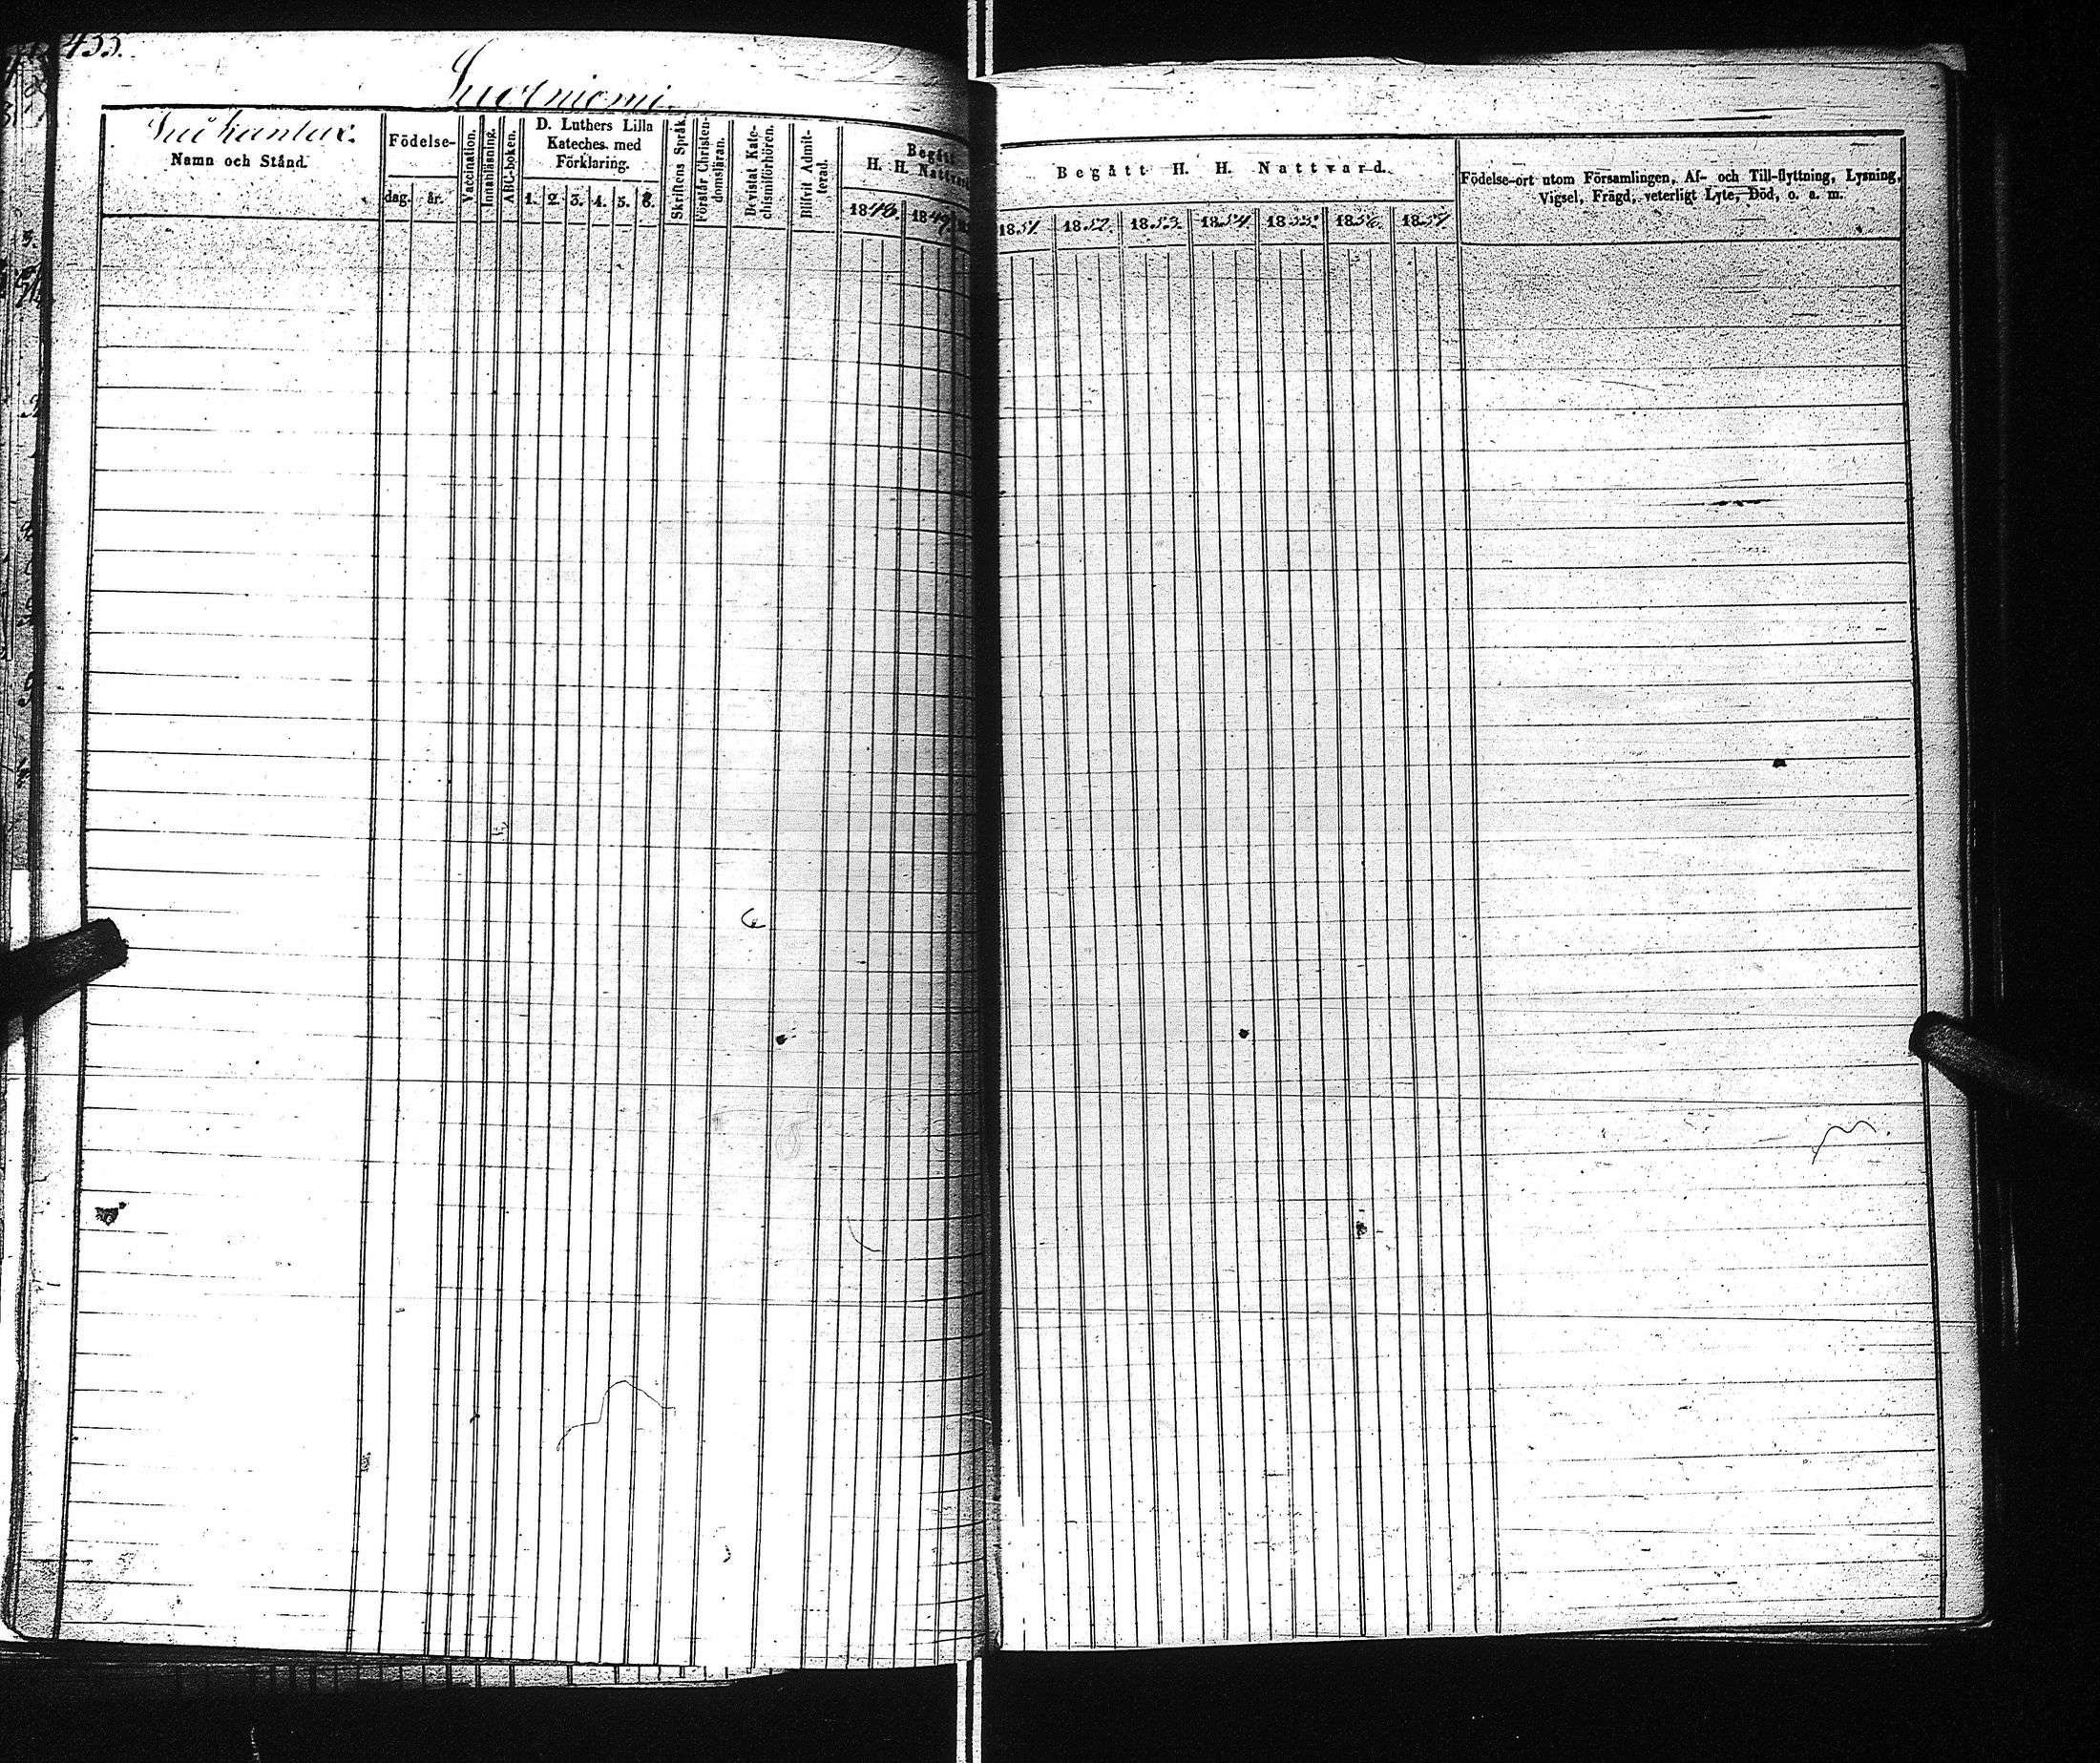 455.
Suurniemi.
Namn och Stånd.
Födelse-
dag. år.
Vaccination.
Innanläsning.
ABC-boken.
D. Luthers Lilla
Kateches med
Förklaring.
1. 2. 3. 4. 5. 8.
Skriftens Språk.
Förstår Christen-
domsläran.
Bevistat Kate-
chismiförhören.
Blifvit Admit-
terad.
Begått
H. H. Nattvard
1848. 1849.
Begått H. H. Nattvard.
1851. 1852. 1853. 1854. 1855. 1856. 1857.
Födelse-ort utom Församlingen, Af- och Till-flyttning, Lysning,
Vigsel, Frägd, veterligt Lyte, Död, o. a. m.